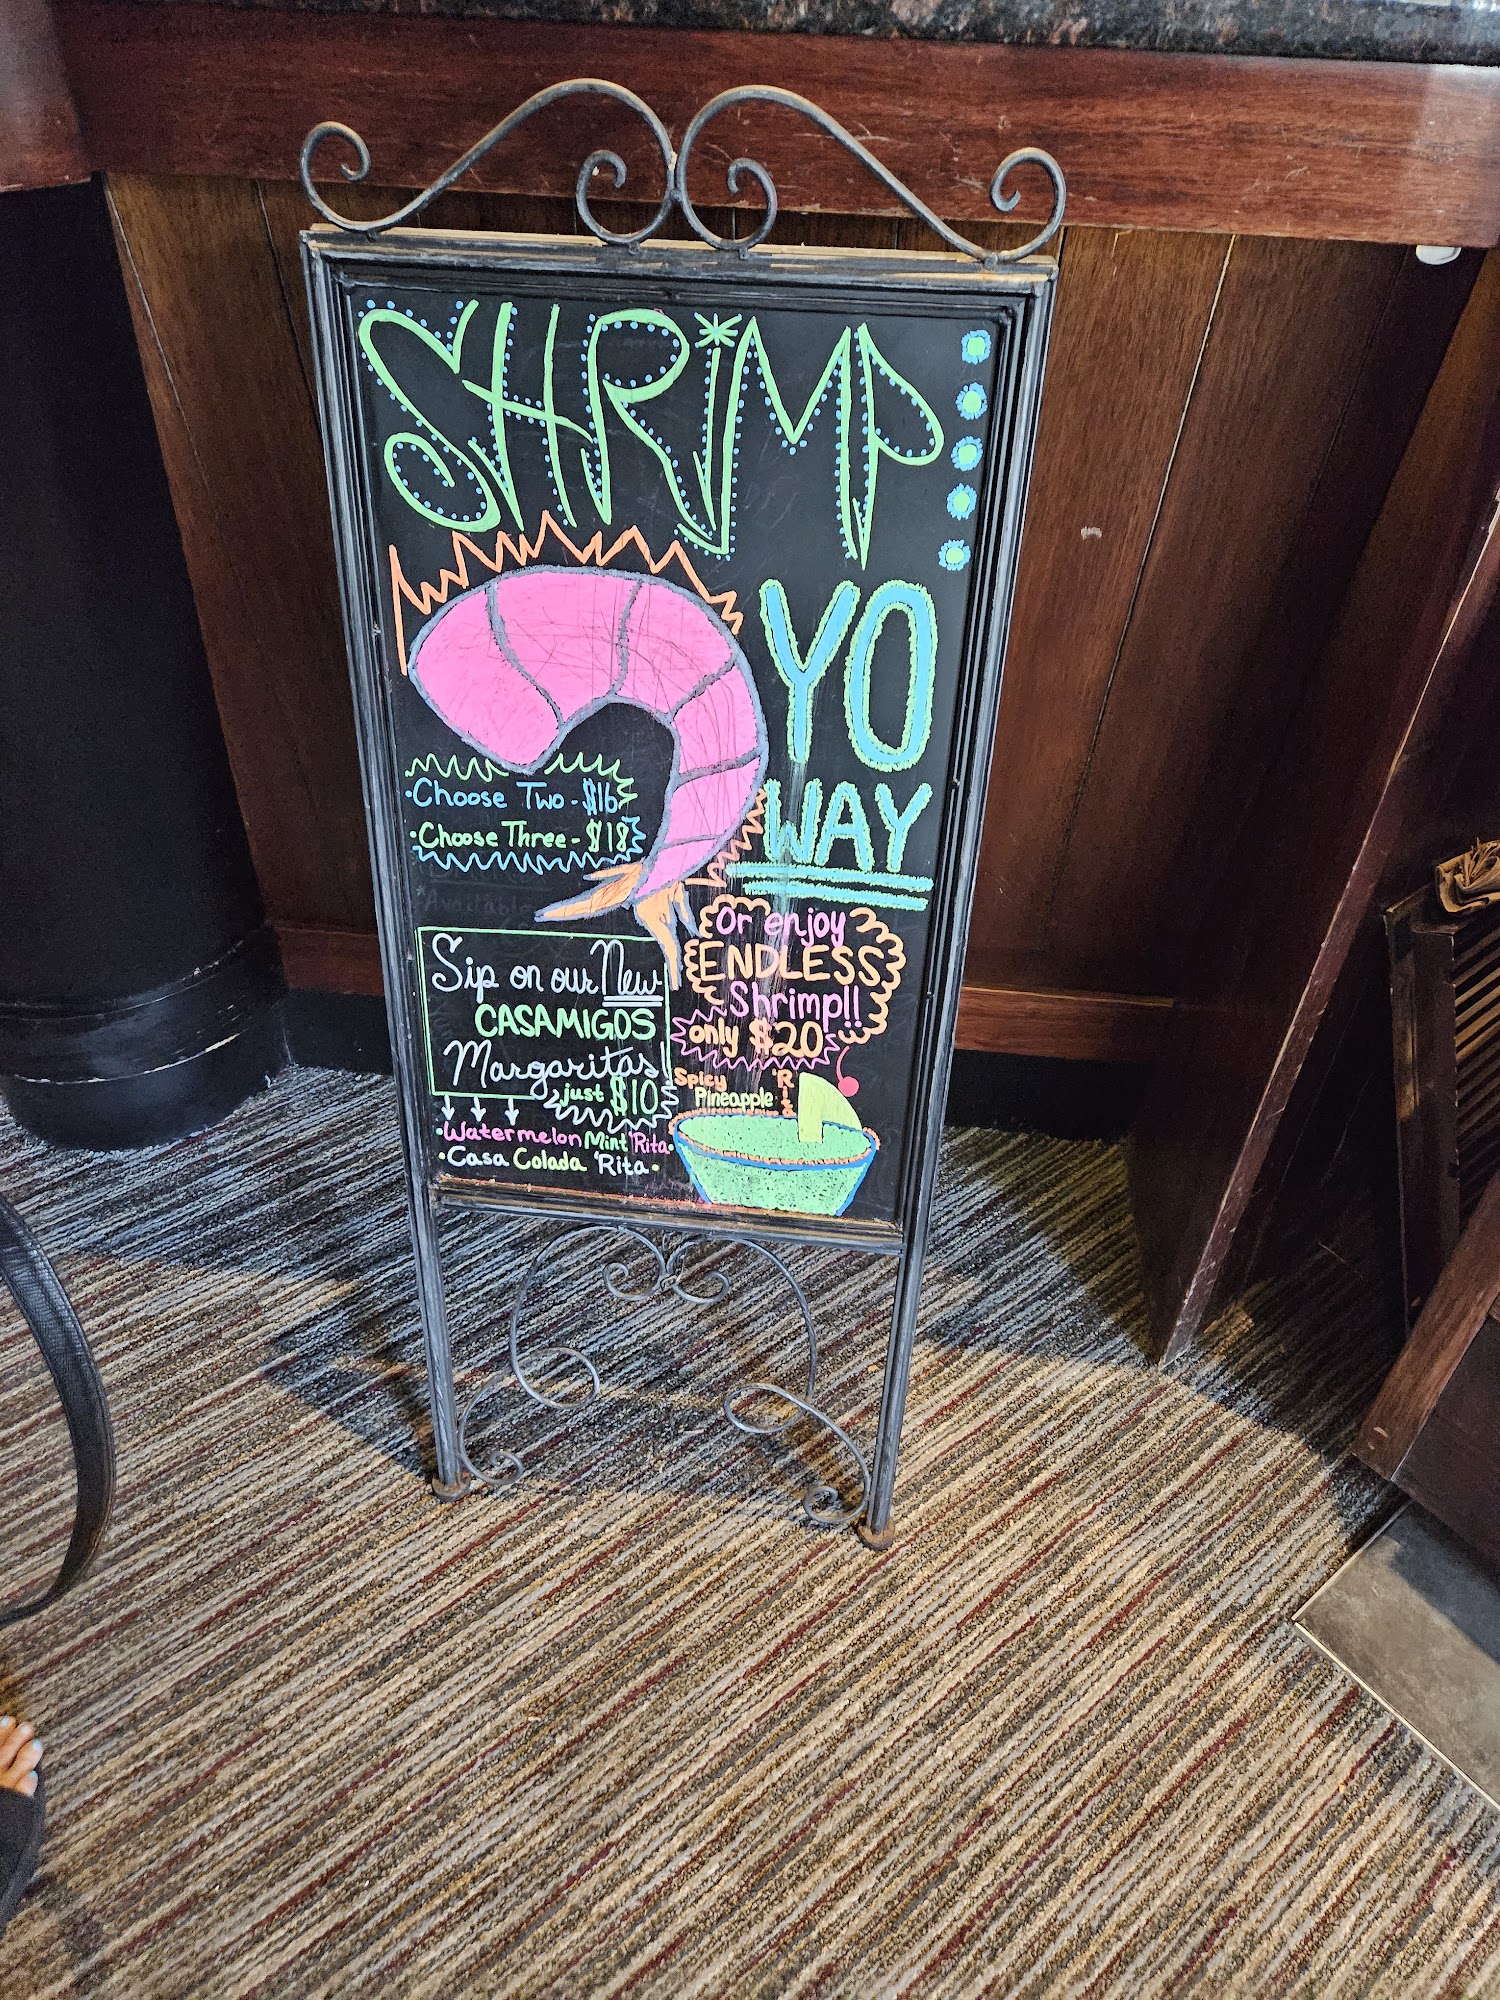 SHRiMP
YO
WAY
•Choose Two - $16
•Choose Three - $18
Or enjoy
ENDLESS
Shrimp!!
only $20
*Available
Sip on our New
CASAMIGOS
Margaritas!
just $10
•Watermelon Mint 'Rita•
•Casa Colada 'Rita•
Spicy
Pineapple
'Rita